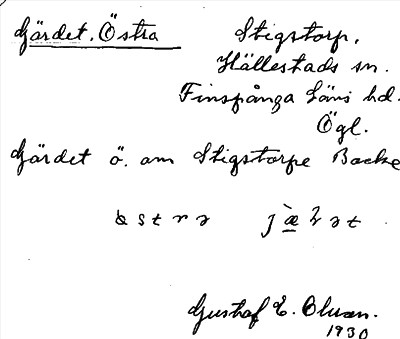 Gärdet, Östra Stigstorp,
Hällestads sn.
Finspånga läns hd.
Ögl.
Gärdet ö. om Stigstorps Backe
Gustaf E.
1930